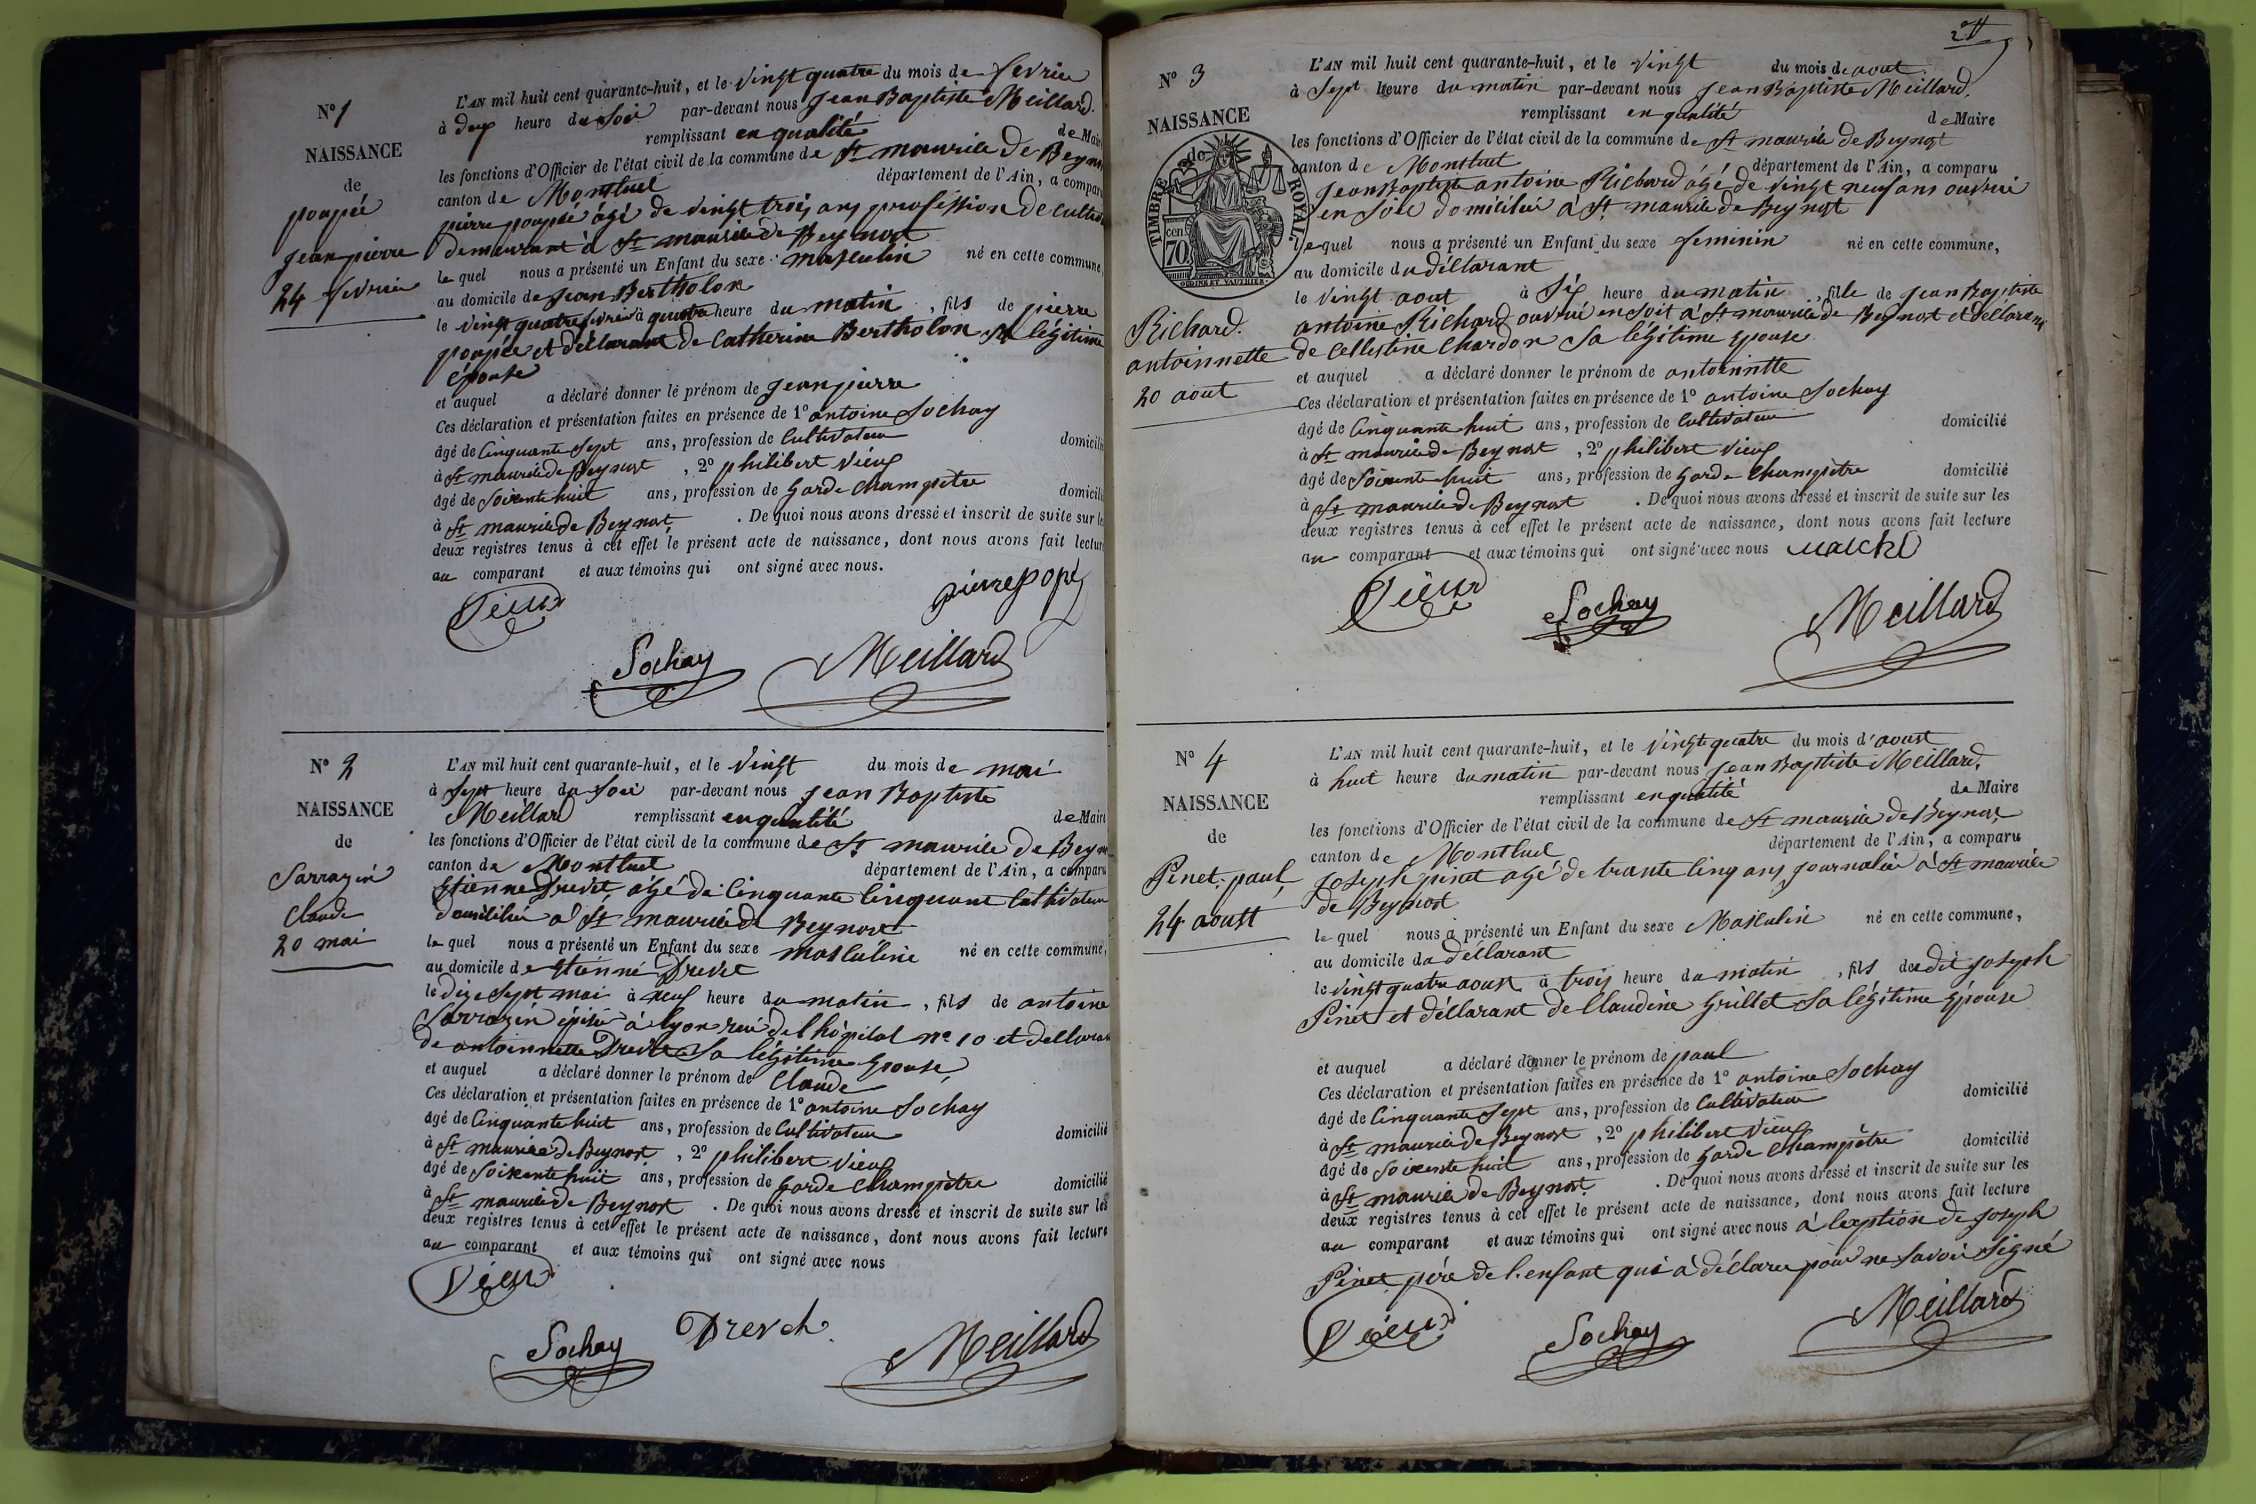 N° 1
NAISSANCE
de
poupée
jean pierre
24 fevrier
L'AN mil huit cent quarante-huit, et le vingt quatre du mois de fevrier
à deux heure du soir par-devant nous jean Baptiste Meillard.
remplissant en qualité de Maire
les fonctions d'Officier de l'état civil de la commune de St maurice de Beynost
canton de Montluel département de l'Ain, a comparu
pierre poupée âgé de vingt trois ans profession de cultivateur
demeurant à St maurice de Beynost
le quel nous a présenté un Enfant du sexe masculin né en cette commune,
au domicile de jean Bertholon
le vingt quatre fevrier à quatre heure du matin, fils de pierre
poupée et déclarant de Catherine Bertholon sa légitime
épouse
et auquel a déclaré donner le prénom de jean pierre
Ces déclaration et présentation faites en présence de 1° antoine Sochay
âgé de Cinquante sept ans, profession de Cultivateur domicilié
à St maurice de Beynost, 2° philibert vieux
âgé de Soixente huit ans, profession de garde champètre domicilié
à St maurice de Beynost. De quoi nous avons dressé et inscrit de suite sur les
deux registres tenus à cet effet le présent acte de naissance, dont nous avons fait lecture
au comparant et aux témoins qui ont signé avec nous.
pierre popé
Vieux
Sochay Meillard
N° 2
NAISSANCE
de
Sarrazin
Claude
20 mai
L'AN mil huit cent quarante-huit, et le vingt du mois de mai
à sept heure du soir par-devant nous jean Baptiste
Meillard remplissant en qualité de Maire
les fonctions d'Officier de l'état civil de la commune de St maurice de Beynost
canton de Montluel département de l'Ain, a comparu
Etienne Drevet âgé de Cinquante Cinq ans Cultivateur
domicilié a St maurice de Beynost
le quel nous a présenté un Enfant du sexe masculine né en cette commune,
au domicile de Etienne Drevet
le dix sept mai à neuf heure du matin, fils de antoine
Sarrazin à lyon rue de l'hôpital n° 10 et déclarant
de antoinnette Drevet sa légitime Epouse,
et auquel a déclaré donner le prénom de Claude
Ces déclaration et présentation faites en présence de 1° antoine Sochay
âgé de Cinquante huit ans, profession de Cultivateur domicilié
à St maurice de Beynost, 2° philibert vieux
âgé de Soixente huit ans, profession de garde Champètre domicilié
à St maurice de Beynost. De quoi nous avons dressé et inscrit de suite sur les
deux registres tenus à cet effet le présent acte de naissance, dont nous avons fait lecture
au comparant et aux témoins qui ont signé avec nous
Vieux
Sochay Meillard
N° 3
NAISSANCE
de
TIMBRE ROYAL
70 cen
Richard.
antoinnette
20 aout
L'AN mil huit cent quarante-huit, et le vingt du mois de aout
à sept heure du matin par-devant nous jean Baptiste Meillard.
remplissant en qualité de Maire
les fonctions d'Officier de l'état civil de la commune de St maurice de Beynost
canton de Montluel département de l'Ain, a comparu
jean Baptiste antoine Richard âgé de vingt neuf ans ouvrié
en soie domicilié à St maurice de Beynost
le quel nous a présenté un Enfant du sexe feminin né en cette commune,
au domicile du déclarant
le vingt aout à six heure du matin, fille de jean Baptiste
antoine Richard ouvrié en soit à St maurice de Beynost et déclarant
de Cellestine Chardon sa légitime épouse
et auquel a déclaré donner le prénom de antoinnitte
Ces déclaration et présentation faites en présence de 1° antoine Sochay
âgé de Cinquante huit ans, profession de Cultivateur domicilié
à St maurice de Beynost, 2° philibert vieux
âgé de Soixente huit ans, profession de garde Champètre domicilié
à St maurice de Beynost. De quoi nous avons dressé et inscrit de suite sur les
deux registres tenus à cet effet le présent acte de naissance, dont nous avons fait lecture
au comparant et aux témoins qui ont signé avec nous
Vieux Sochay Meillard
N° 4
NAISSANCE
de
Pinet, paul,
24 aoust
L'AN mil huit cent quarante-huit, et le vingt quatre du mois d'aoust
à huit heure du matin par-devant nous jean Baptiste Meillard,
remplissant en qualité de Maire
les fonctions d'Officier de l'état civil de la commune de St maurice de Beynost
canton de Montluel département de l'Ain, a comparu
joseph pinet âgé de trante Cinq ans, journalié à St maurice
de Beynost
le quel nous a présenté un Enfant du sexe Masculin né en cette commune,
au domicile du déclarant
le vingt quatre aoust à trois heure du matin, fils du dit joseph
Pinet et déclarant de Claudine Grillet sa légitime Epouse
et auquel a déclaré donner le prénom de paul
Ces déclaration et présentation faites en présence de 1° antoine Sochay
âgé de Cinquante sept ans, profession de Cultivateur domicilié
à St maurice de Beynost, 2° philibert vieux
âgé de Soixente huit ans, profession de garde Champètre domicilié
à St maurice de Beynost. De quoi nous avons dressé et inscrit de suite sur les
deux registres tenus à cet effet le présent acte de naissance, dont nous avons fait lecture
au comparant et aux témoins qui ont signé avec nous à l'exption de joseph
Pinet père de l'enfant qui à déclaré pour ne savoir signé
Vieux Sochay Meillard